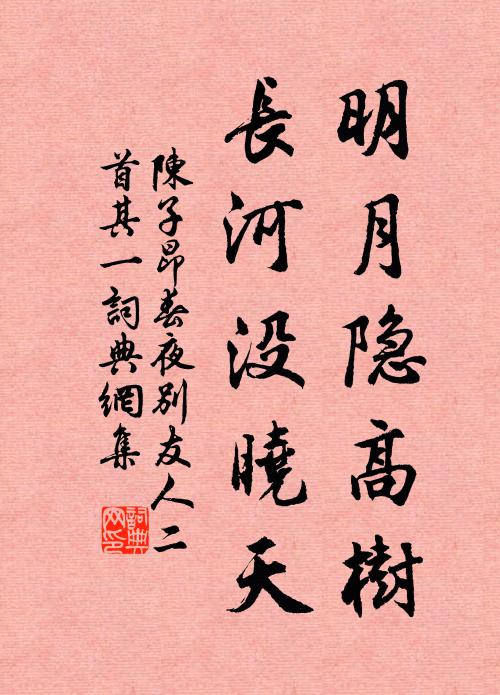 明月隐高樹
長河没曉天
陳子昂春夜别友人二
首其一詞典網集
詞典
网印